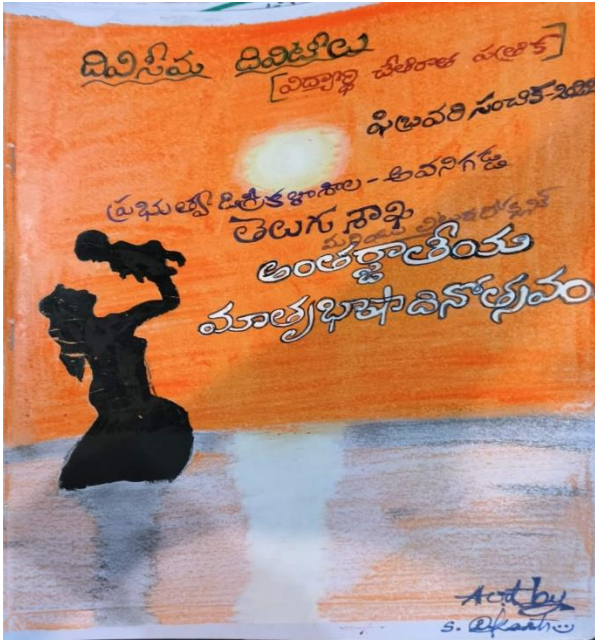 దివిసీమ దివిటీలు
[విద్యార్థి చేతిరాత పత్రిక]
ఫిబ్రవరి సంచిక
ప్రభుత్వ డిగ్రీ కళాశాల - అవనిగడ్డ
తెలుగు శాఖ
మరియు
అంతర్జాతీయ
మాతృభాషా దినోత్సవం
Act by
S.